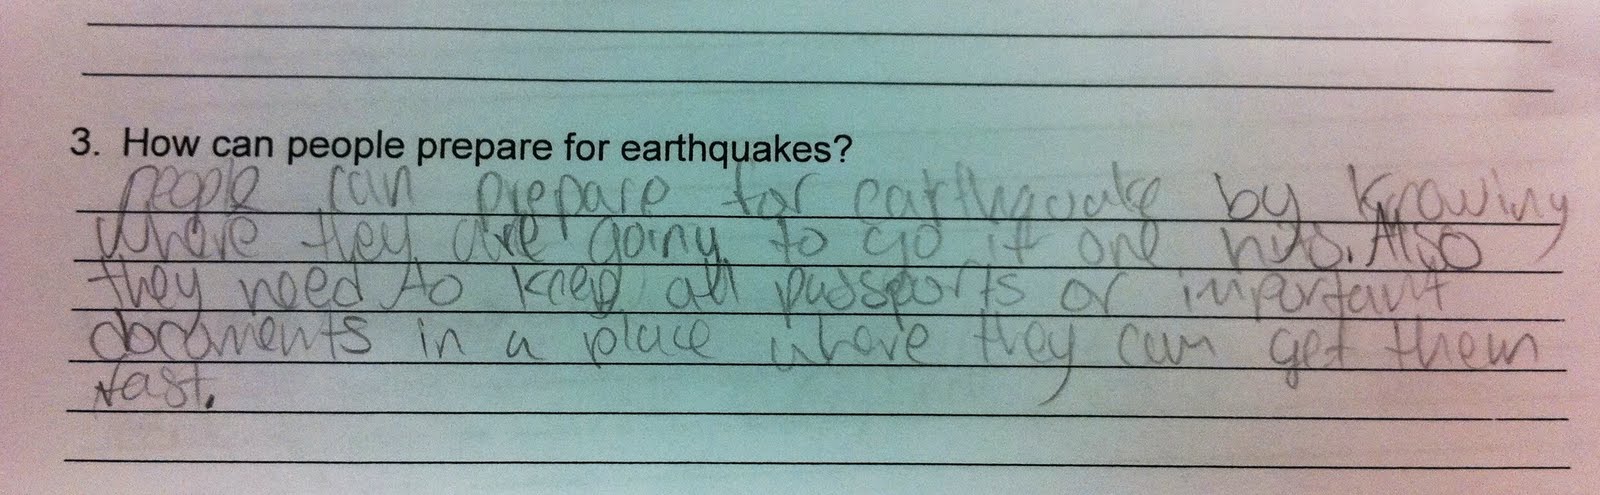 3. How can people prepare for earthquakes?
people can prepare for earthquake by knowing
where they are going to go if one hits. Also
they need to keep all passports or important
documents in a place where they can get them
fast.